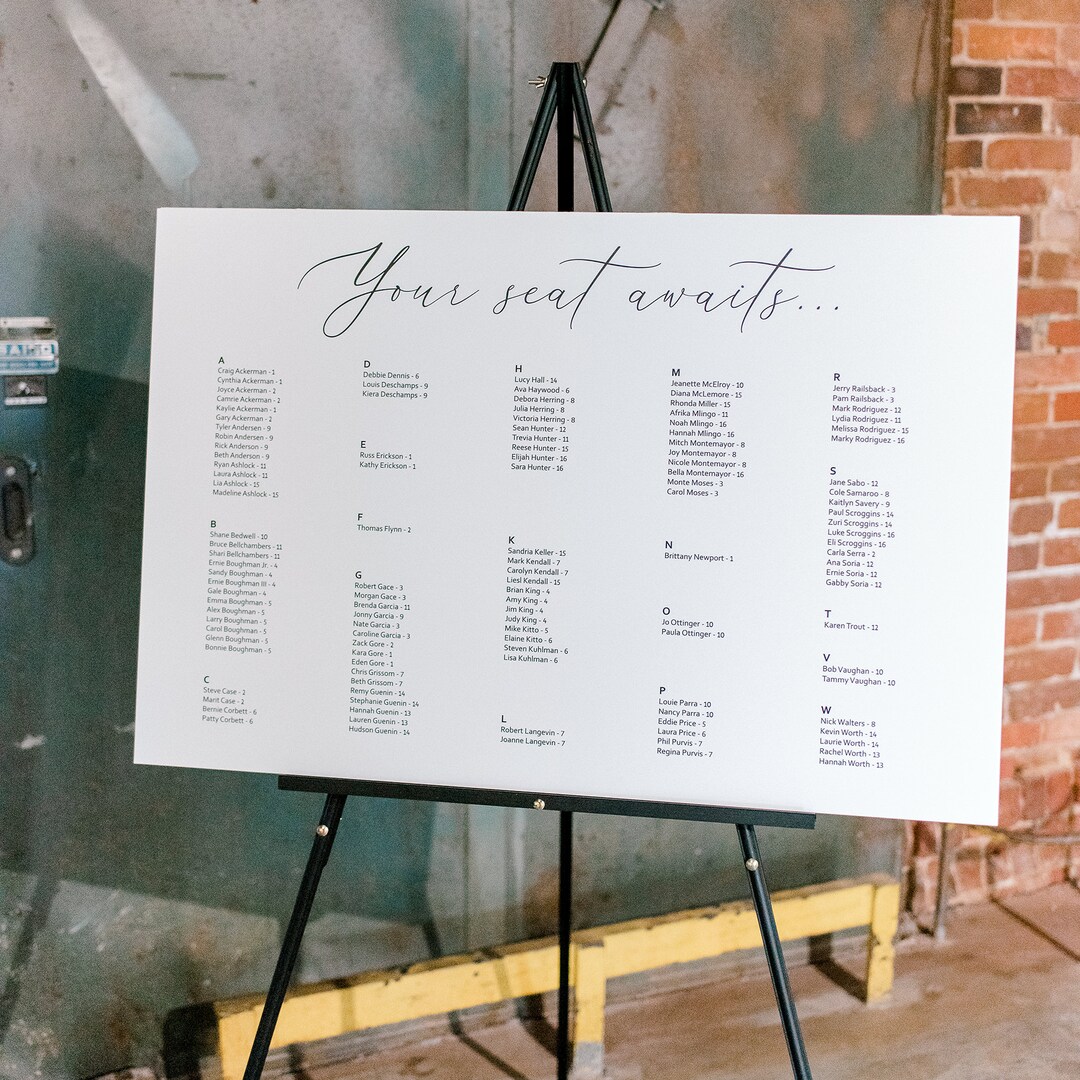 Your seat awaits...
A
Craig Ackerman - 1
Cynthia Ackerman - 1
Joyce Ackerman - 2
Camrie Ackerman - 2
Kaylie Ackerman - 1
Gary Ackerman - 2
Tyler Andersen - 9
Robin Andersen - 9
Rick Anderson - 9
Beth Anderson - 9
Ryan Ashlock - 11
Laura Ashlock - 11
Lia Ashlock - 15
Madeline Ashlock - 15
B
Shane Bedwell - 10
Bruce Bellchambers - 11
Shari Bellchambers - 11
Ernie Boughman Jr. - 4
Sandy Boughman - 4
Ernie Boughman III - 4
Gale Boughman - 4
Emma Boughman - 5
Alex Boughman - 5
Larry Boughman - 5
Carol Boughman - 5
Glenn Boughman - 5
Bonnie Boughman - 5
C
Steve Case - 2
Marit Case - 2
Bernie Corbett - 6
Patty Corbett - 6
D
Debbie Dennis - 6
Louis Deschamps - 9
Kiera Deschamps - 9
E
Russ Erickson - 1
Kathy Erickson - 1
F
Thomas Flynn - 2
G
Robert Gace - 3
Morgan Gace - 3
Brenda Garcia - 11
Jonny Garcia - 9
Nate Garcia - 3
Caroline Garcia - 3
Zack Gore - 2
Kara Gore - 1
Eden Gore - 1
Chris Grissom - 7
Beth Grissom - 7
Remy Guenin - 14
Stephanie Guenin - 14
Hannah Guenin - 13
Lauren Guenin - 13
Hudson Guenin - 14
H
Lucy Hall - 14
Ava Haywood - 6
Debora Herring - 8
Julia Herring - 8
Victoria Herring - 8
Sean Hunter - 12
Trevia Hunter - 11
Reese Hunter - 15
Elijah Hunter - 16
Sara Hunter - 16
K
Sandria Keller - 15
Mark Kendall - 7
Carolyn Kendall - 7
Liesl Kendall - 15
Brian King - 4
Amy King - 4
Jim King - 4
Judy King - 4
Mike Kitto - 5
Elaine Kitto - 6
Steven Kuhlman - 6
Lisa Kuhlman - 6
L
Robert Langevin - 7
Joanne Langevin - 7
M
Jeanette McElroy - 10
Diana McLemore - 15
Rhonda Miller - 15
Afrika Mlingo - 11
Noah Mlingo - 16
Hannah Mlingo - 16
Mitch Montemayor - 8
Joy Montemayor - 8
Nicole Montemayor - 8
Bella Montemayor - 16
Monte Moses - 3
Carol Moses - 3
N
Brittany Newport - 1
O
Jo Ottinger - 10
Paula Ottinger - 10
P
Louie Parra - 10
Nancy Parra - 10
Eddie Price - 5
Laura Price - 6
Phil Purvis - 7
Regina Purvis - 7
R
Jerry Railsback - 3
Pam Railsback - 3
Mark Rodriguez - 12
Lydia Rodriguez - 11
Melissa Rodriguez - 15
Marky Rodriguez - 16
S
Jane Sabo - 12
Cole Samaroo - 8
Kaitlyn Savery - 9
Paul Scroggins - 14
Zuri Scroggins - 14
Luke Scroggins - 16
Eli Scroggins - 16
Carla Serra - 2
Ana Soria - 12
Ernie Soria - 12
Gabby Soria - 12
T
Karen Trout - 12
V
Bob Vaughan - 10
Tammy Vaughan - 10
W
Nick Walters - 8
Kevin Worth - 14
Laurie Worth - 14
Rachel Worth - 13
Hannah Worth - 13